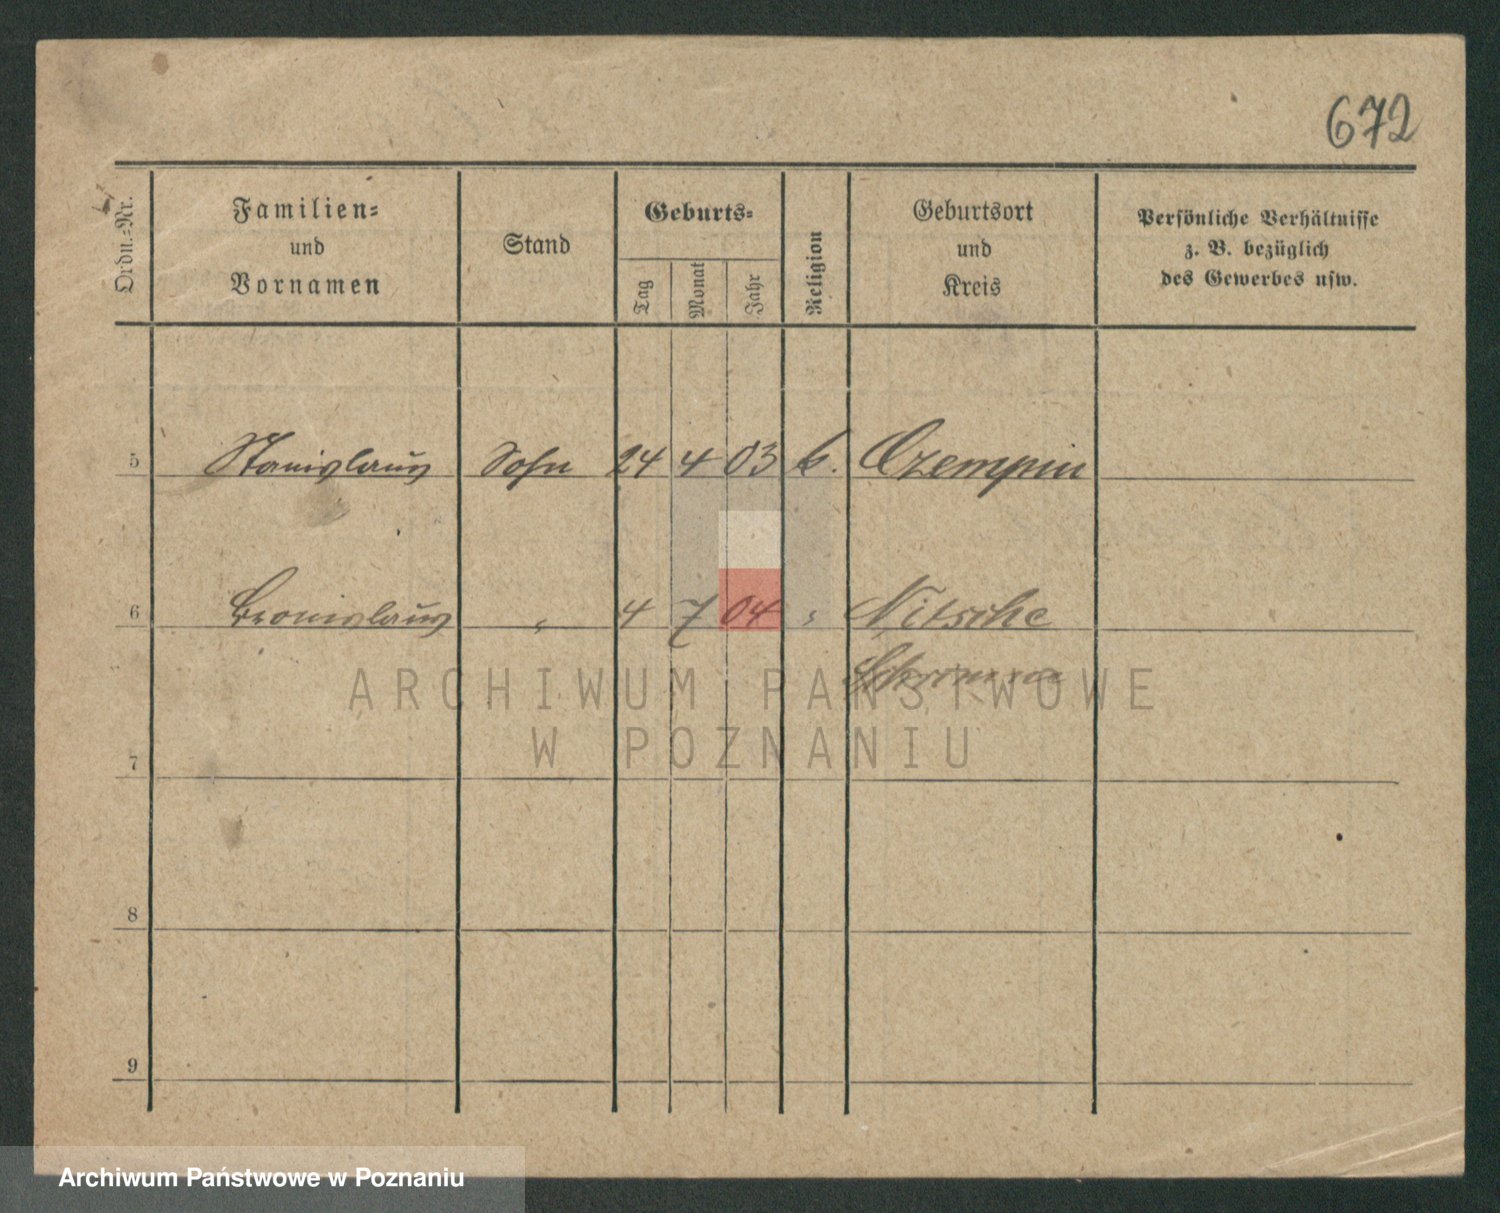 672
Ordn.-Nr.
Familien-
und
Vornamen
Stand
Geburts-
Tag
Monat
Jahr
Religion
Geburtsort
und
Kreis
Persönliche Verhältnisse
z. B. bezüglich
des Gewerbes usw.
5 Stanislaus Sohn 24 4 03 k. Czempin
6 Bronislaus " 4 7 04 " Nitsche
7
8
9
ARCHIWUM PAŃSTWOWE
W POZNANIU
Archiwum Państwowe w Poznaniu